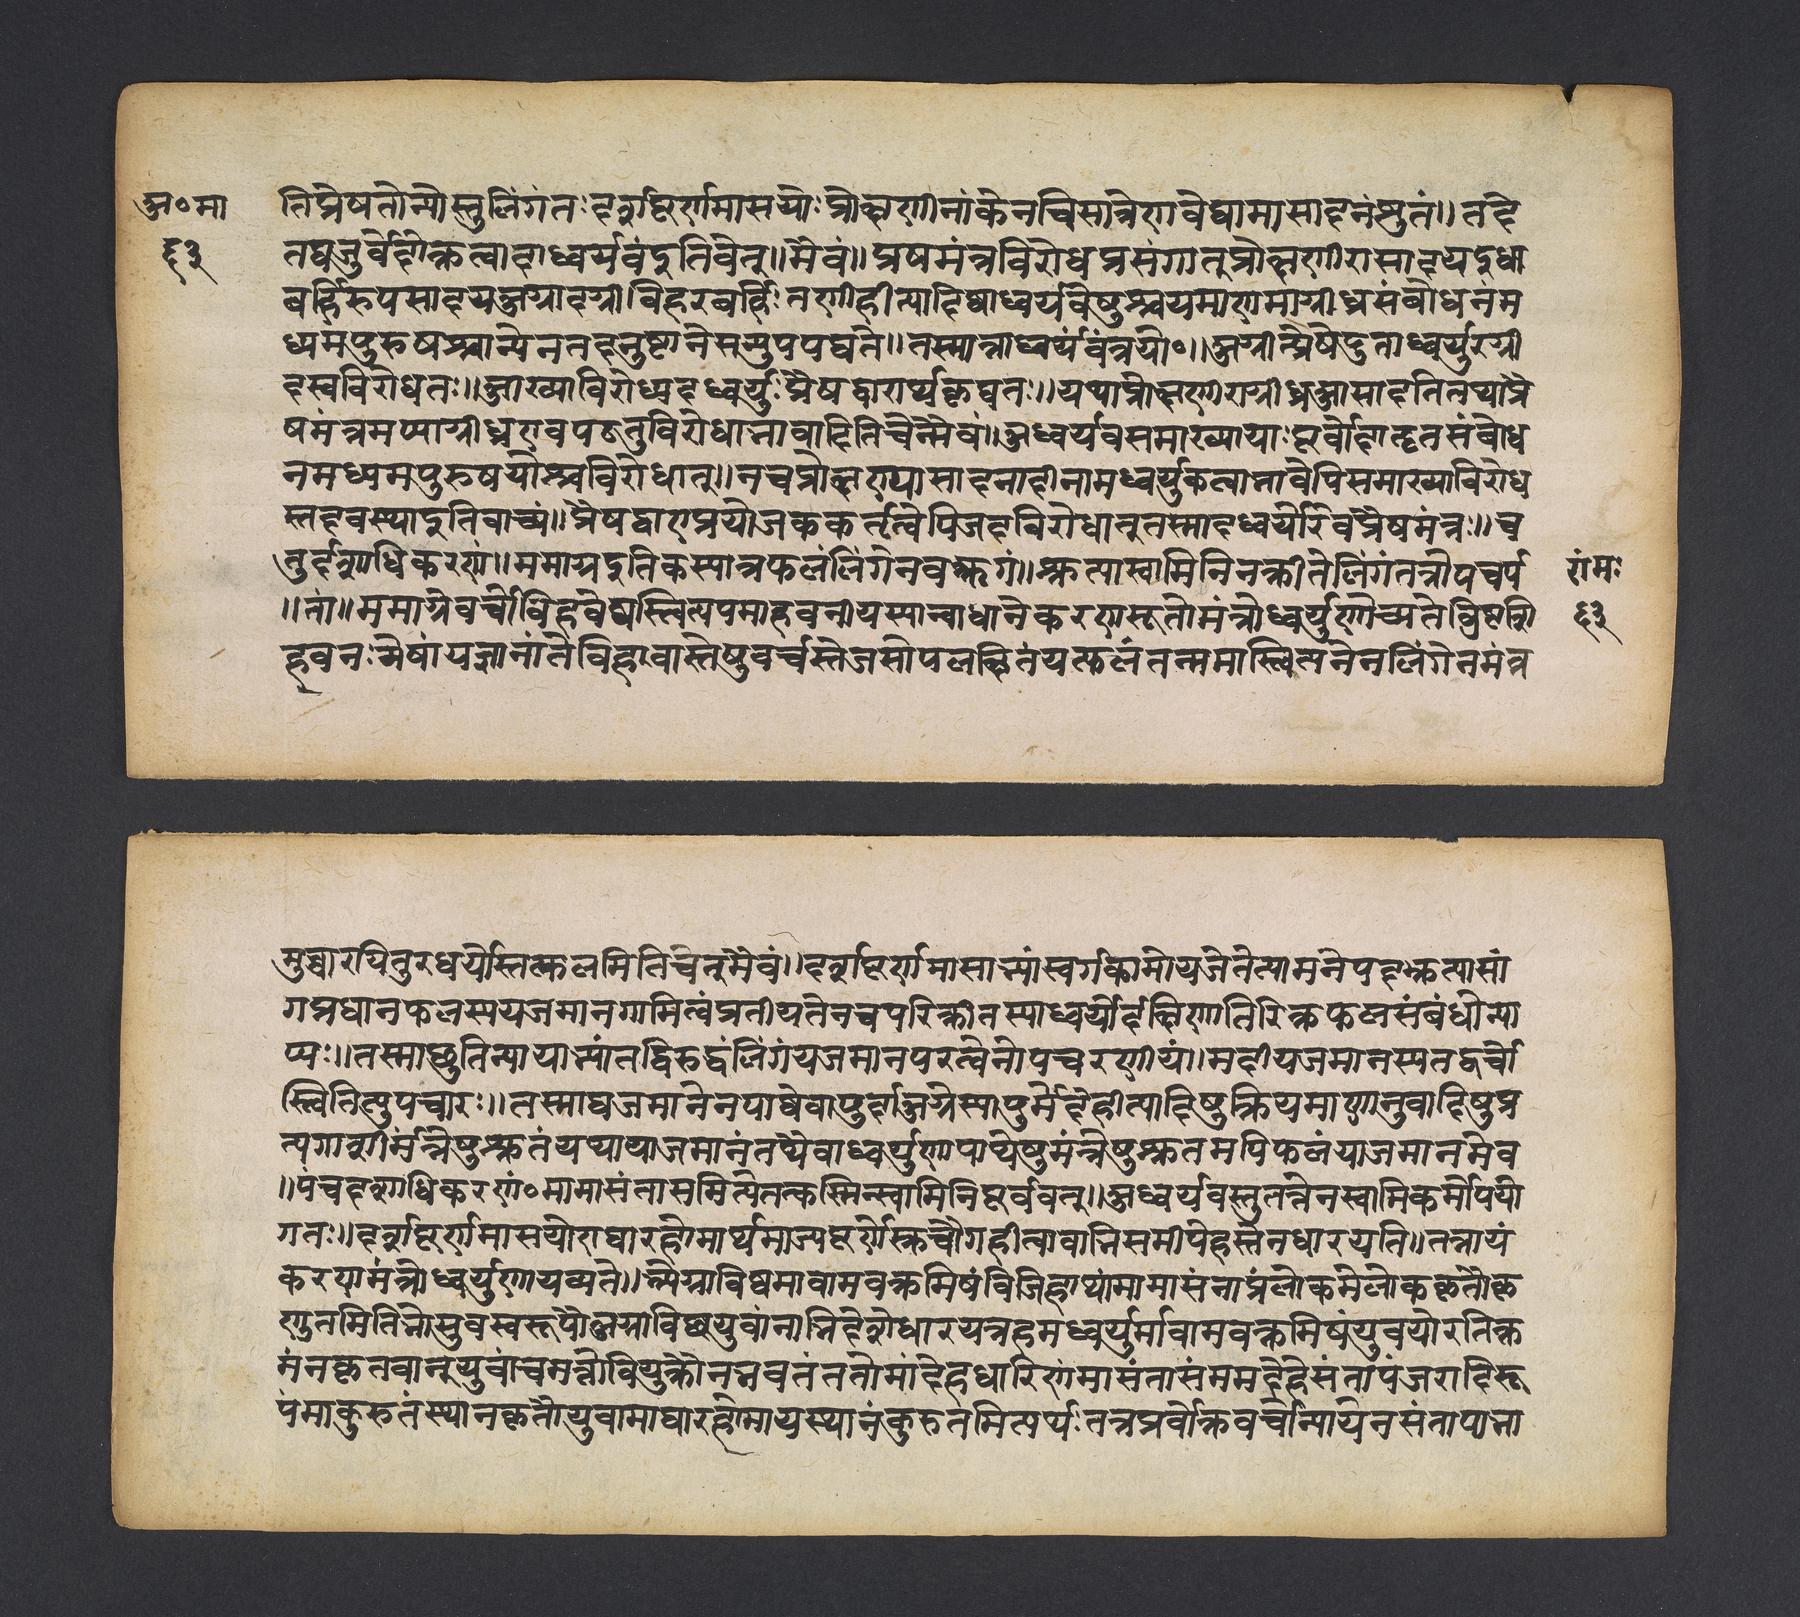 अ॰मा
६३
तिप्रेषतोन्योस्तुलिंगतः दर्शपूर्णमासयोः प्रोक्षणीनांकेनचित्सान्नेणवेद्यामासादनंश्रुतं॥ तदे
तद्यजुर्वेदोक्तत्वादाध्वर्यवंइतिचेत्॥ मैवं॥ प्रषमंत्रविरोधप्रसंगात्प्रोक्षणीरासादयइध्मा
बर्हिरुपसादयअग्रीदग्नीविहरबर्हिः तणीहीत्यादिषाध्वर्यवेषुश्रूयमाणमाग्नीध्रसंबोधनंम
ध्यमंपुरुषश्चान्येनतदनुष्टानेसत्युपपद्यते॥ तस्मान्नाध्वर्यवंत्रयो॰॥ अग्नीत्प्रेषेदुताध्वर्युरग्नी
दस्त्वविरोधतः॥ आख्याविरोध्यदध्वर्युः प्रैषद्वारार्थकृद्यतः॥ यथाप्रोक्षणीराग्नीध्रआसादतितथाप्रै
षमंत्रमप्याग्नीध्रएवपठतुविरोधाभावादितिचेन्मैवं॥ अध्वर्यवसमाख्यायाः पूर्वोदाहृतसंबोध
नमध्यमपुरुषयोश्चविरोधात्॥ नचप्रोक्षण्यासादनादीनामध्वर्युकत्वाभावेपिसमाख्याविरोध
स्तदवस्थइतिवाच्यं॥ प्रैषद्वाराप्रयोजककर्तृत्वेपिजदविरोधात्तस्मादध्वर्योरेवप्रैषमंत्रः॥ च
तुर्दशाधिकरणं॥ ममाग्नइतिकस्यात्रफलंलिंगेनवक्तृगं॥ श्रुत्यास्वामिनिनक्रीतेलिंगंतत्रोपचर्य
॥तां॥ ममाग्नेवर्चोविहवेष्वस्त्वित्ययमाहवनीयस्यान्वाधानेकरणभूतोमंत्रोध्वर्युणोच्यतेविशिष्ट
हवनः मेषांयज्ञानांतेविहवास्तेषुवर्चस्तेजसोपलक्षितंयत्फलंतन्ममास्त्वित्यनेनलिंगेनमंत्र
रांमः
६३
मुच्चारयितुरध्वर्योस्तत्फलमितिचेत्मैवं॥ दर्शपूर्णमासाभ्यांस्वर्गकामोयजेतेत्यात्मनेपदश्रुत्यासां
गप्रधानफलस्ययजमानगामित्वंप्रतीयतेनचपरिक्रीतस्याध्वर्योर्दक्षिणातिरिक्तफलसंबंधोन्या
य्यः॥ तस्माच्छ्रुतिन्यायाभ्यांतद्विरुद्धंलिंगंयजमानपरत्वेनोपचरणीयं॥ मदीयजमानस्यतद्वर्चो
स्त्वितित्युपचारः॥ तस्माद्यजमानेनपाठ्येवायुर्दाअग्नेस्यायुर्मेदेहीत्यादिषुक्रियमाणानुवादिषुप्र
त्यगाशीर्मंत्रेषुश्रुतंयथायाजमानंतथैवाध्वर्युणापाठ्येषुमंत्रेषुश्रुतमपिफलंयाजमानमेव
॥पंचदशाधिकरणं॰ मामासंताप्तमित्येतत्कस्मिन्स्वामिनिपूर्ववत्॥ अध्वर्यवस्तुतत्तेनस्वामिकर्मोपयो
गतः॥ दर्शपूर्णमासयोराघारहोमार्थमाज्यपूर्णोस्रुचौगृहीत्वानाभिसमीपेहस्तेनधारयति॥ तत्रायं
करणमंत्रोध्वर्युणायव्यते॥ अग्नाविष्णमावामवक्रमिषंविजिहाथांमामासंताप्तंलोकमेलोककृतौकृ
णुतमितिभोस्रुवस्वरूपौअग्नाविष्णूयुवांनाभिदेशेधारयन्नहमध्वर्युर्मावामवक्रमिषंयुवयोरतिक्र
मंनकृतवान्युवांचमत्तोवियुक्तौनभवतंततोमांदेहधारिणंमासंताप्तंममदेहेसंतापंज्वरादिरू
पंमाकुरुतंस्थानकृतौयुवामाघारहोमायस्थानंकुरुतमित्यर्थः तत्रपूर्वोक्तवर्चोन्यायेनसंतापाभा